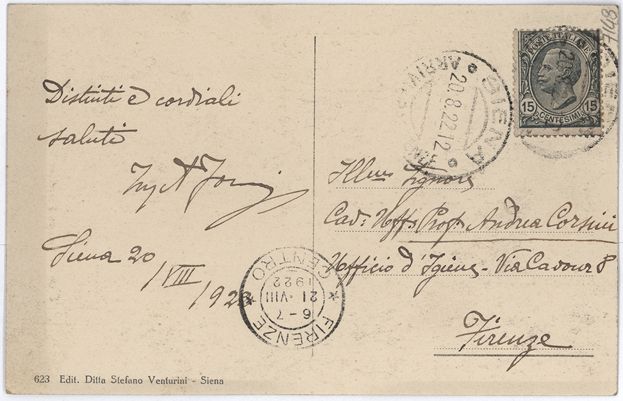 Distinti e cordiali
saluti
Ing A
Siena 20
/VIII
/1922
Illmo Signore
Cav: Uff. Prof. Andrea Corsini
Ufficio d'Igiene - Via Cavour 8
Firenze
SIENA
ARRIVI
20.8.22.12
POSTE ITALIANE
15 15
CENTESIMI
SIENA
FIRENZE
CENTRO
6-7
21·VIII
1922
623 Edit. Ditta Stefano Venturini - Siena